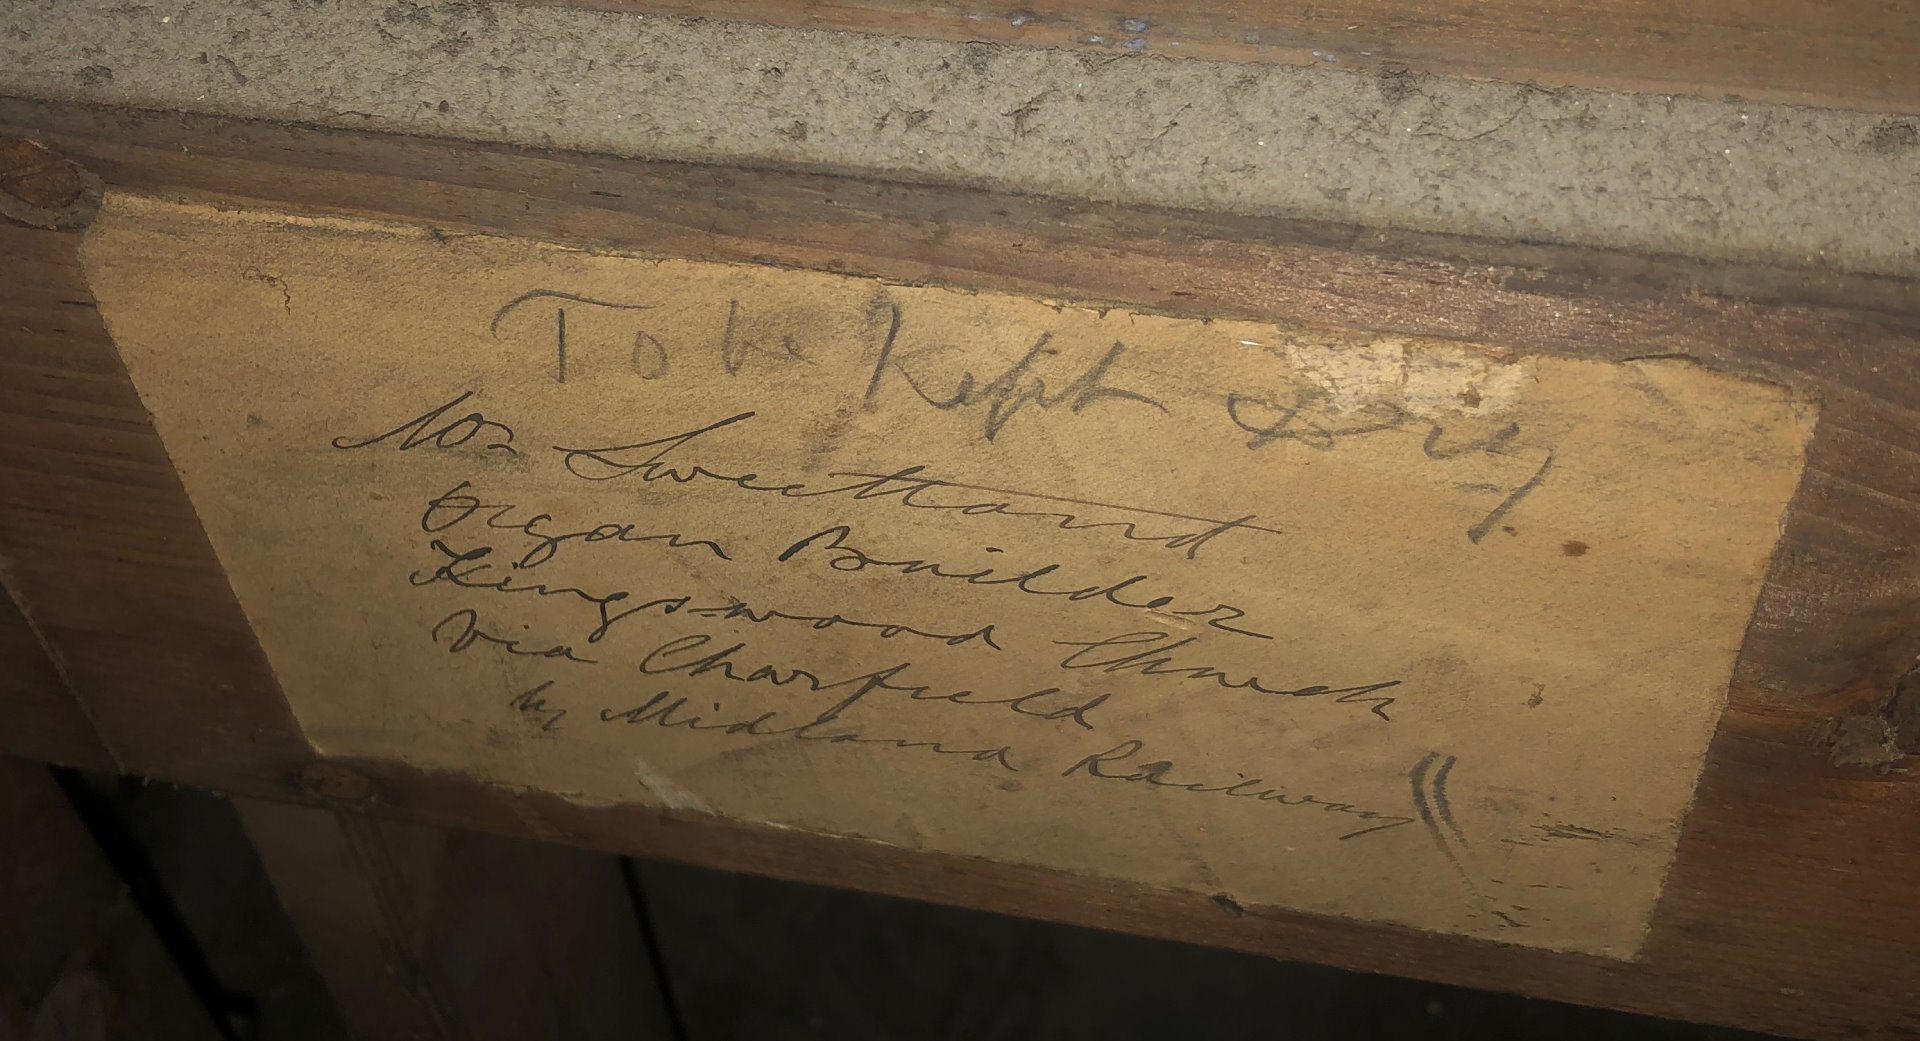 To be Kept Dry
Mr Sweetland
Organ Builder
Kingswood Church
Via Charfield
by Midland Railway